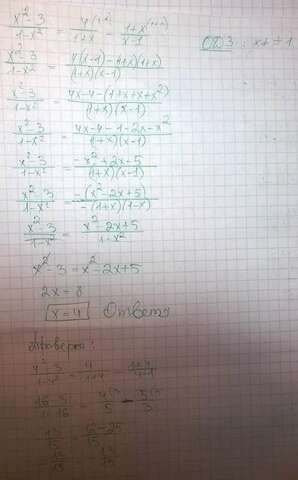 x²-3/1-x² = 4^(x-1)/1+x - 1+x^(1+x)/x-1 ОДЗ: x≠±1
x²-3/1-x² = 4(x-1)-(1+x)(1+x)/(1+x)(x-1)
x²-3/1-x² = 4x-4-(1+x+x+x²)/(1+x)(x-1)
x²-3/1-x² = 4x-4-1-2x-x²/(1+x)(x-1)
x²-3/1-x² = -x²+2x-5/(1+x)(x-1)
x²-3/1-x² = -(x²-2x+5)/-(1+x)(1-x)
x²-3/1-x² = x²-2x+5/1-x²
x²-3 = x²-2x+5
2x=8
x=4 Ответ
Проверка:
4²-3/1-4² = 4/1+4 - 1+4/4-1
4/5 - 5/3